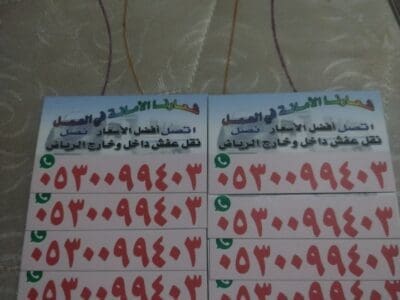 شعارنا الأمانة في العمل
اتصل أفضل الأسعار نصل
نقل عفش داخل وخارج الرياض
٠٥٣٠٠٩٩٤٠٣
٠٥٣٠٠٩٩٤٠٣
٠٥٣٠٠٩٩٤٠٣
٠٥٣٠٠٩٩٤٠٣
شعارنا الأمانة في العمل
اتصل أفضل الأسعار نصل
نقل عفش داخل وخارج الرياض
٠٥٣٠٠٩٩٤٠٣
٠٥٣٠٠٩٩٤٠٣
٠٥٣٠٠٩٩٤٠٣
٠٥٣٠٠٩٩٤٠٣